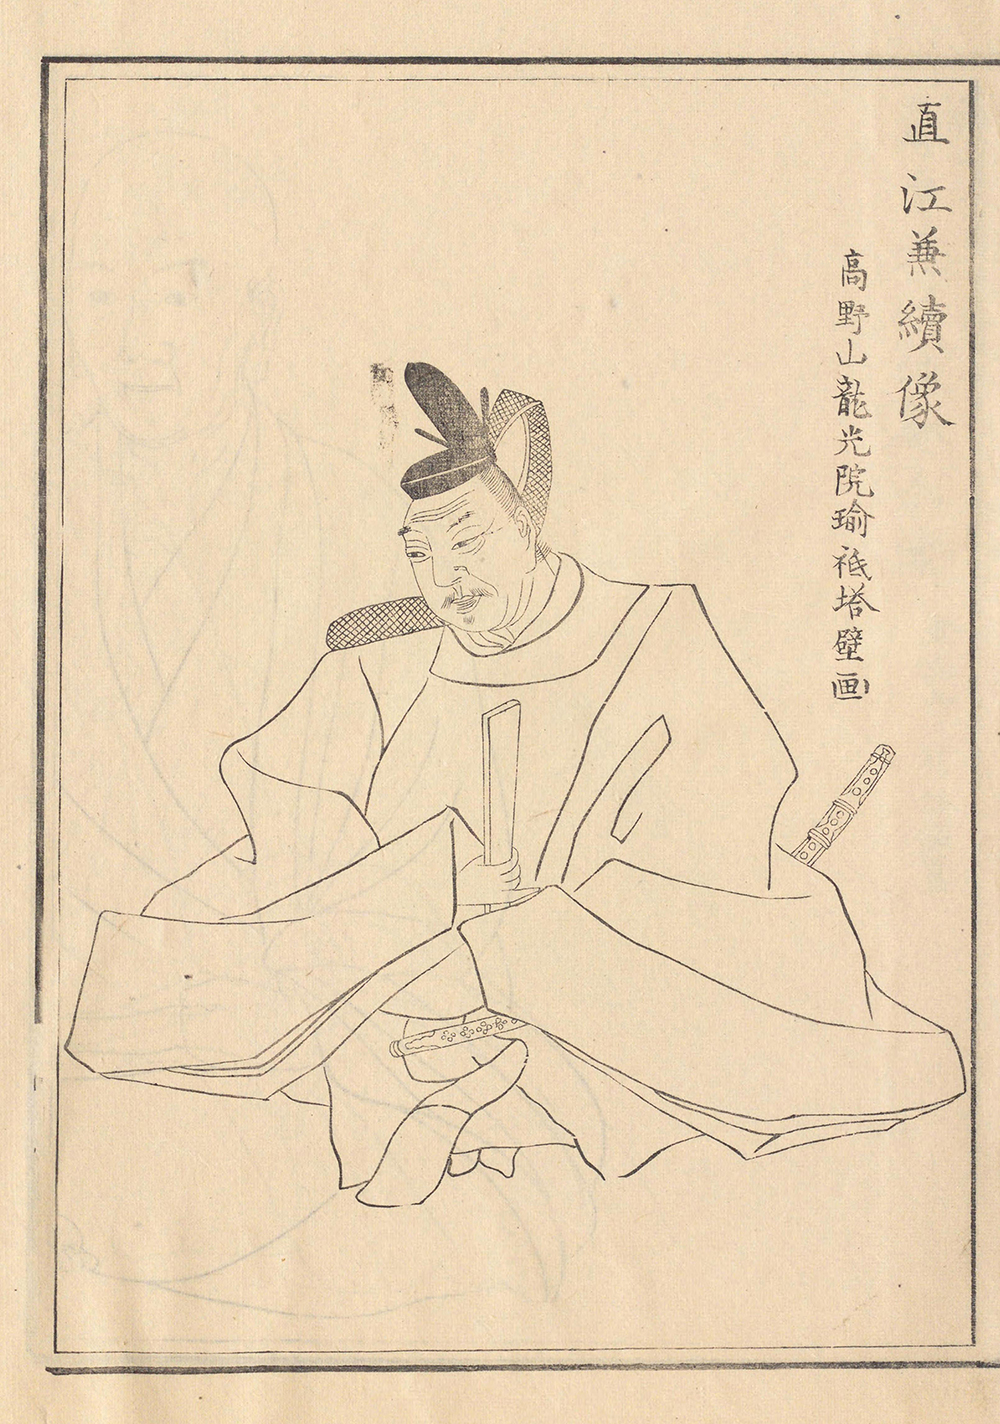 直江兼續像
高野山龍光院瑜祗塔壁画